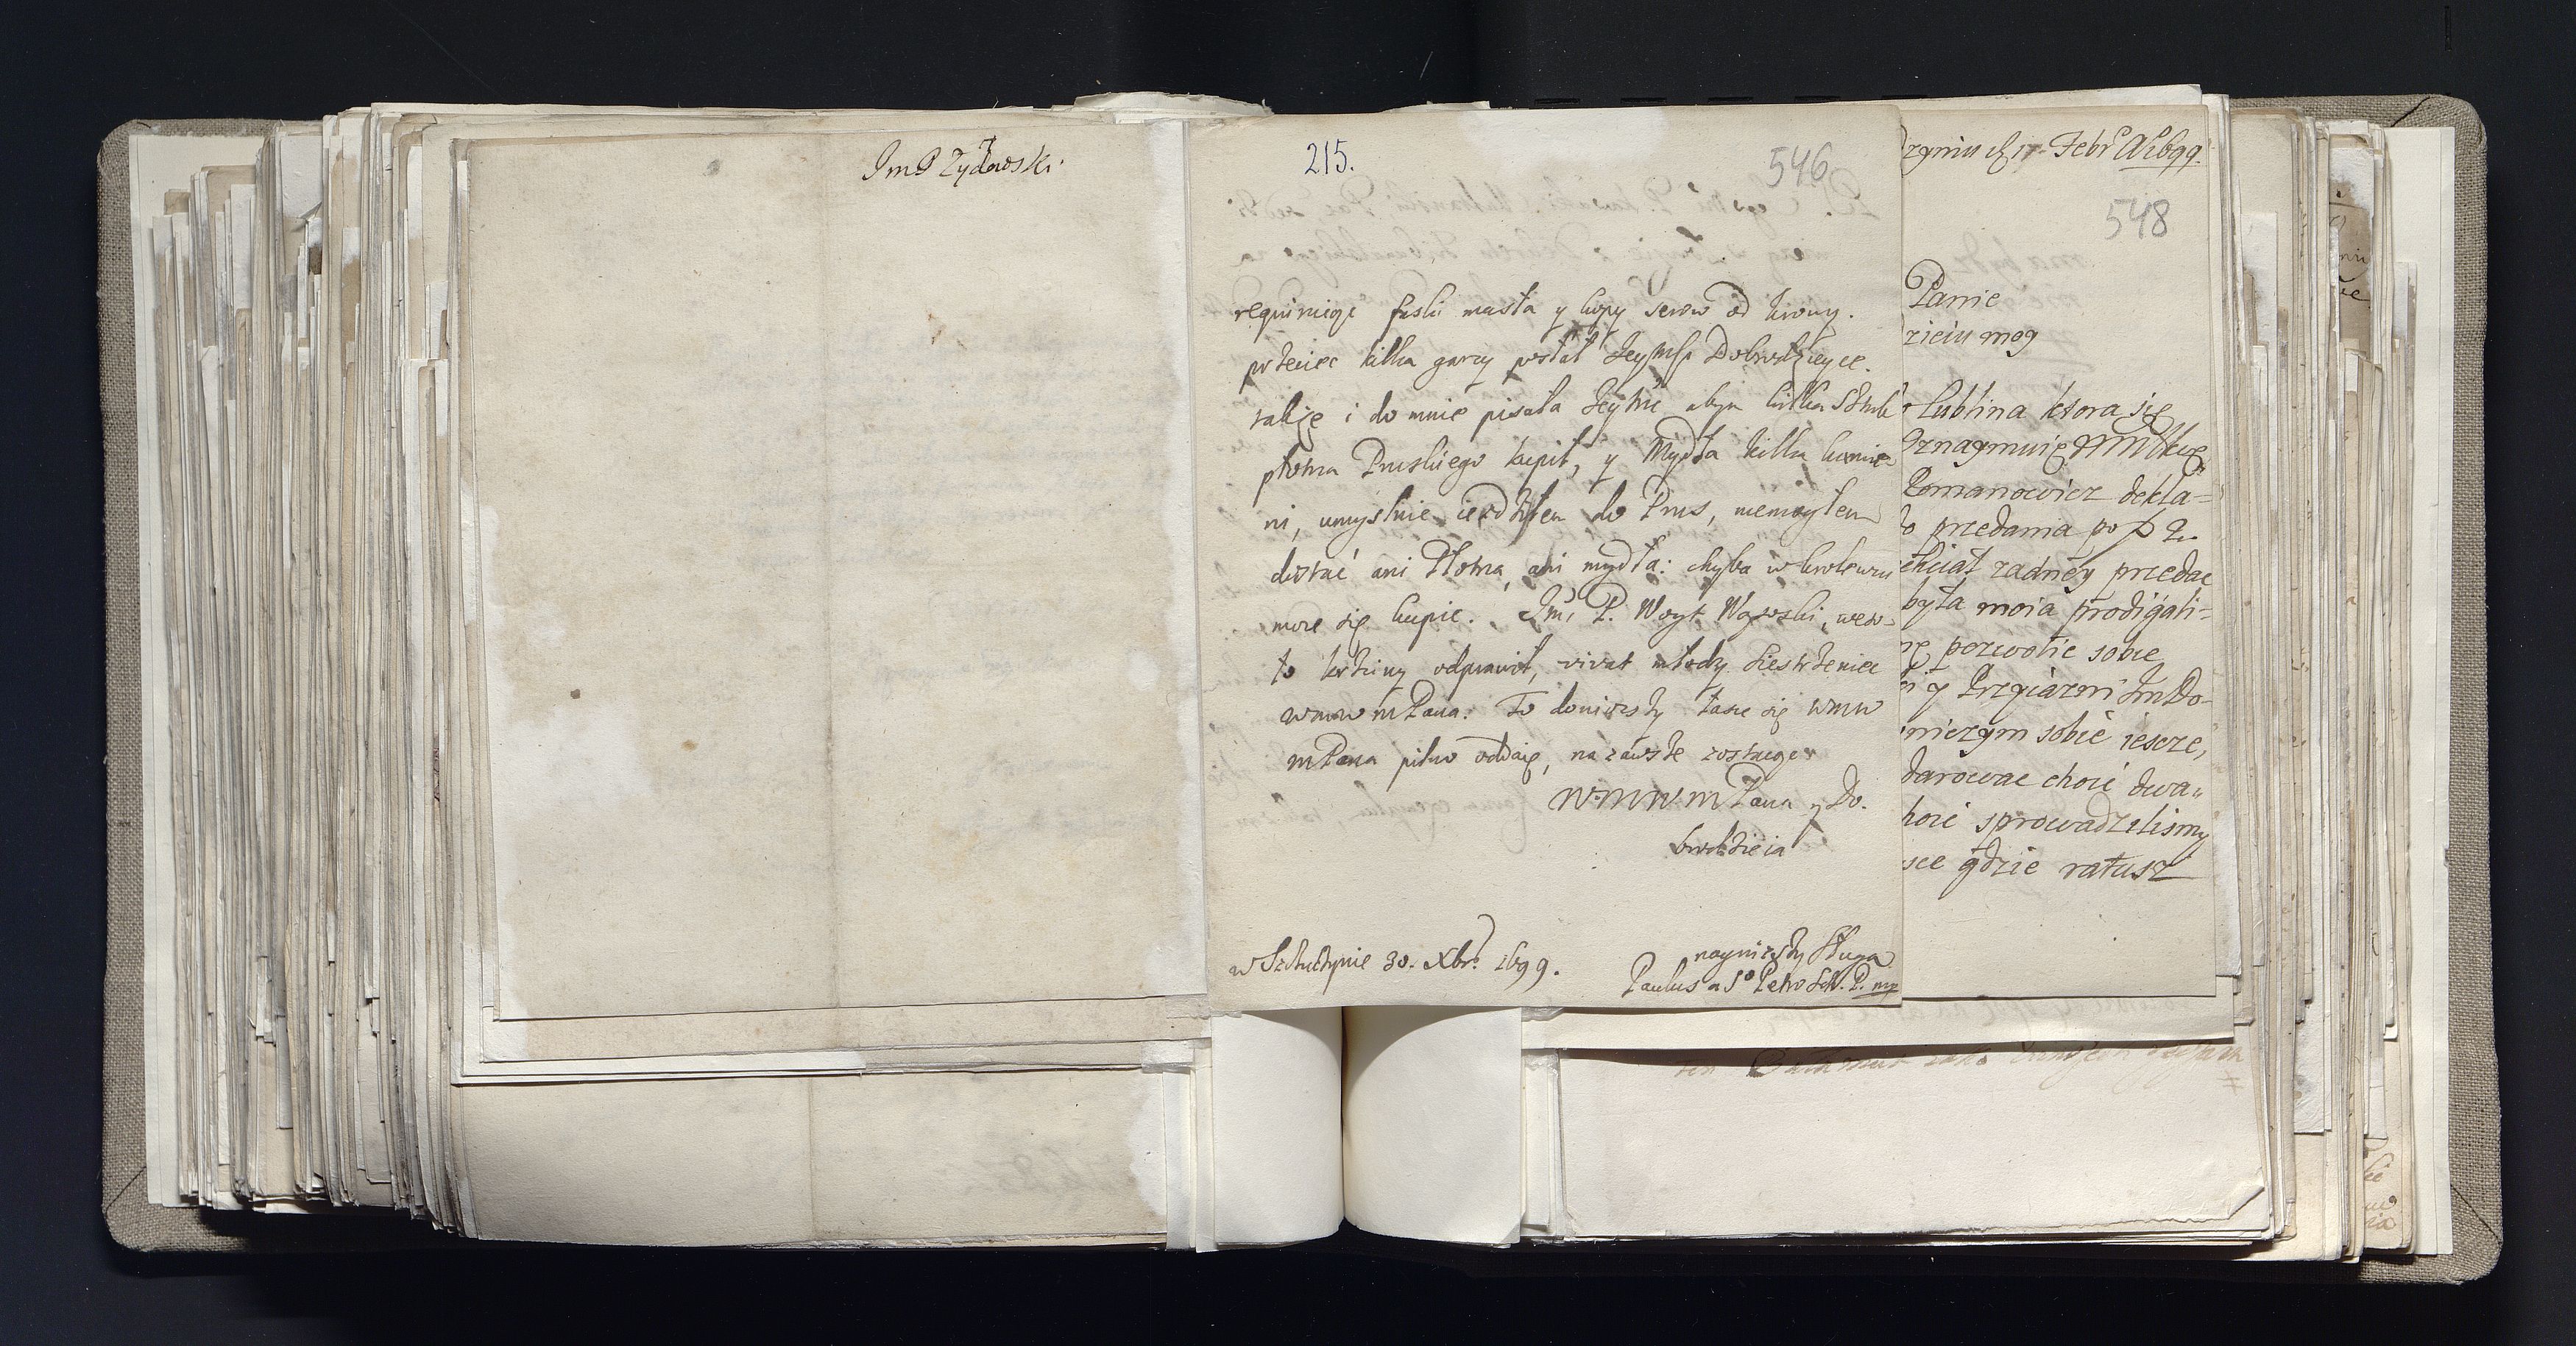 ImP Zydowski
215.
546
requiruiąc faski masła y kopy serow od krowy.
przeciec kilka garcy posłał JeyMsci Dobrodzieyce.
także i do mnie pisała Jeymć abym kilka sztuk
płotna Pruskiego kupił, y Mydła kilka kamie
ni, umyslnie iezdziłem do Prus, niemogłem
dostać ani Płotna, ani mydła: chyba w Krolewcu
może się kupic. Jmć P. Woyt Wąsoski, weso-
ło krzciny odprawił, vivat młody siestrzeniec
wmw mPana. To doniozszy łasce się wmw
mPana pilno oddaię, na zawsze zostaięc
W:MW.MPana y Do.
brodzieia
nayniższy Sługa
w Szczuczynie 30. Xbr. 1699.
Paulus a So Petro Sch. P. mp
rzyniu d 17 Febr A 1699.
548
Panie
zieiu mog
Lublina ktora się
Oznaymuię
Romanowicz dekla-
o przedania po
chciał zadney przedac
była moia prodigali-
pozwolic sobie
y Przyiazni ImDo-
niczym sobie iescze,
darowac choć dwa
hoic sprowadzilismy
sce gdzie ratusz